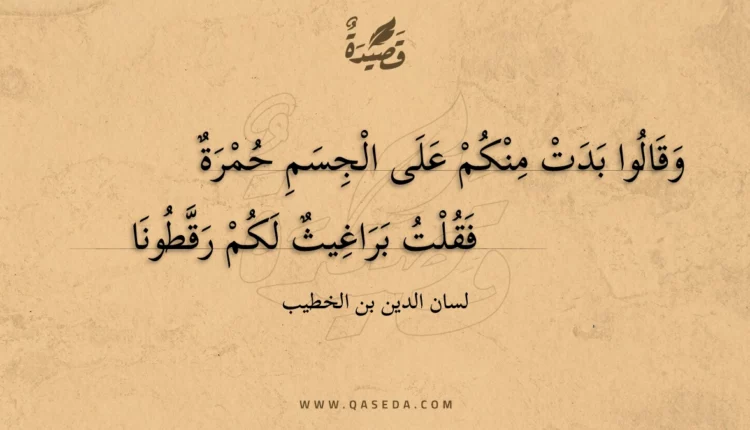 قَصِيدَةٌ
وَقَالُوا بَدَتْ مِنْكُمْ عَلَى الْجِسَمِ حُمْرَةٌ
فَقُلْتُ بَرَاغِيثٌ لَكُمْ رَقَّطُونَا
لسان الدين بن الخطيب
WWW.QASEDA.COM